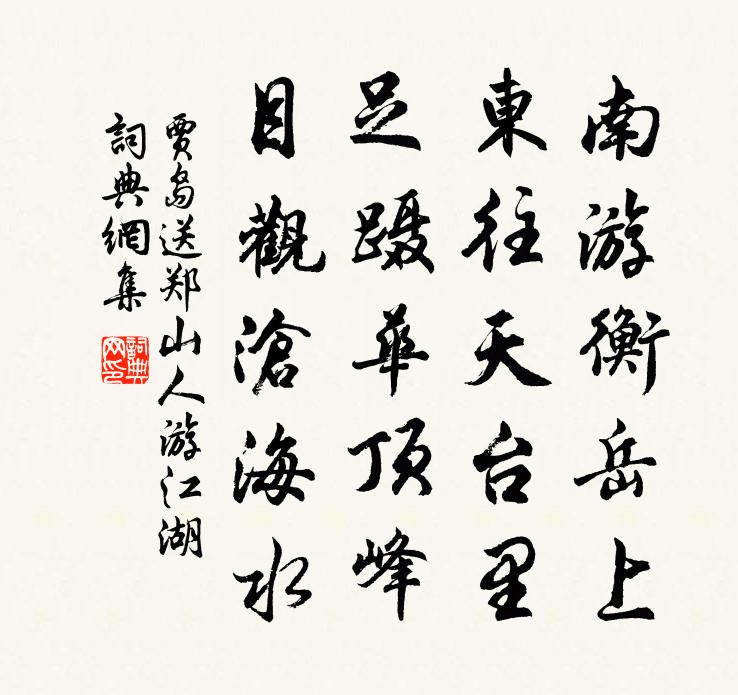 南游衡岳上
東往天台里
足蹑華顶峰
目觀滄海水
賈島送郑山人游江湖
詞典網集
詞典網印